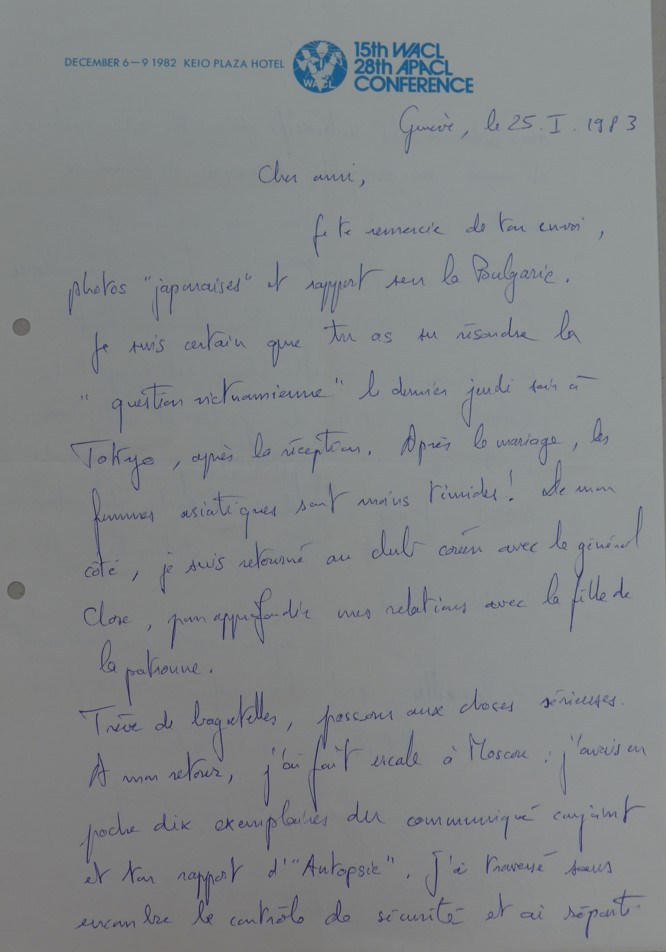 DECEMBER 6-9 1982 KEIO PLAZA HOTEL
WACL
15th WACL
28th APACL
CONFERENCE
Genève, le 25.I.1983
Cher ami,
Je te remercie de ton envoi,
photos "japonaises" et rapport sur la Bulgarie.
Je suis certain que tu as su résoudre la
"question vietnamienne" le dernier jeudi soir à
Tokyo, après la réception. Après le mariage, les
femmes asiatiques sont moins timides! De mon
côté, je suis retourné au club coréen avec le général
Close, pour approfondir mes relations avec la fille de
la patronne.
Trêve de bagatelles, passons aux choses sérieuses.
A mon retour, j'ai fait escale à Moscou : j'avais en
poche dix exemplaires du communiqué conjoint
et ton rapport d'"Autopsie". J'ai traversé sans
encombre le contrôle de sécurité et ai réparti